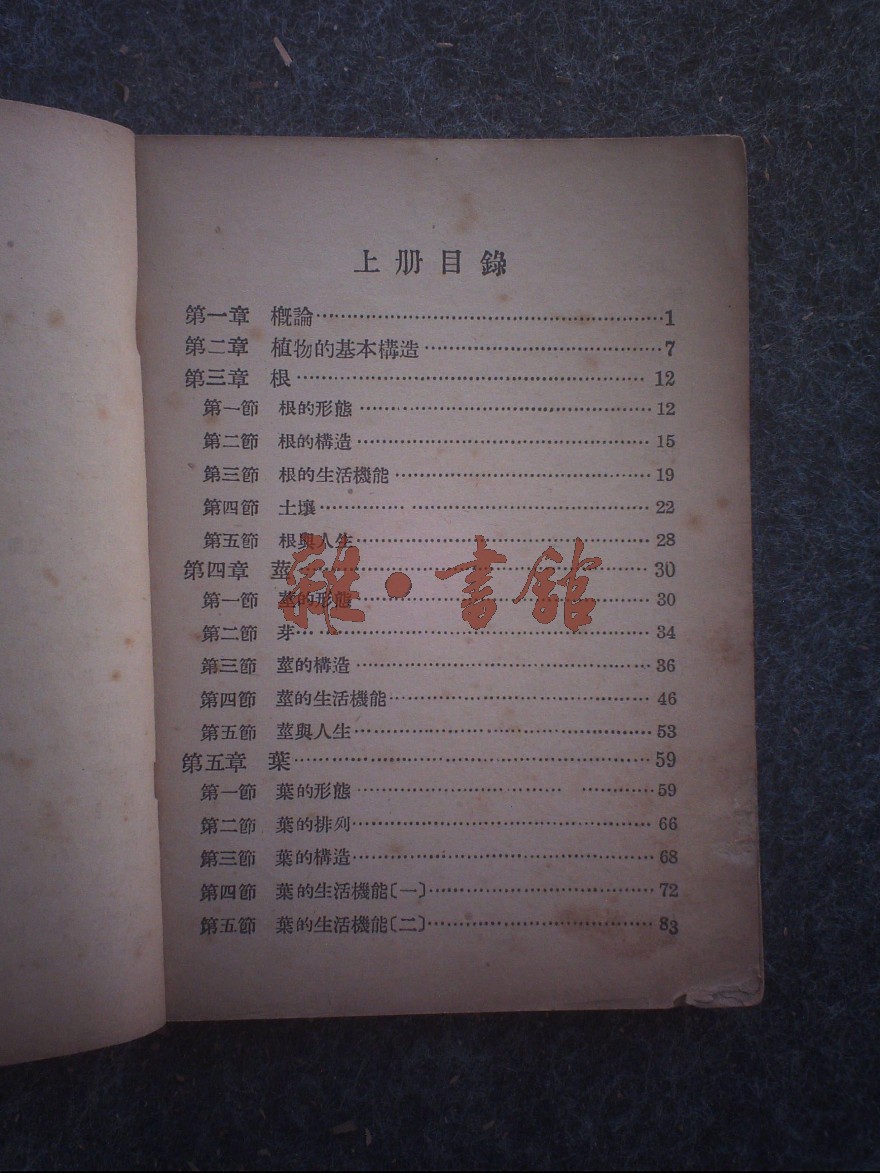 上册目錄
第一章 概論……1
第二章 植物的基本構造……7
第三章 根……12
第一節 根的形態……12
第二節 根的構造……15
第三節 根的生活機能……19
第四節 土壤……22
第五節 根與人生……28
第四章 莖……30
第一節 莖的形態……30
雜·書館
第二節 芽……34
第三節 莖的構造……36
第四節 莖的生活機能……46
第五節 莖與人生……53
第五章 葉……59
第一節 葉的形態……59
第二節 葉的排列……66
第三節 葉的構造……68
第四節 葉的生活機能〔一〕……72
第五節 葉的生活機能〔二〕……83